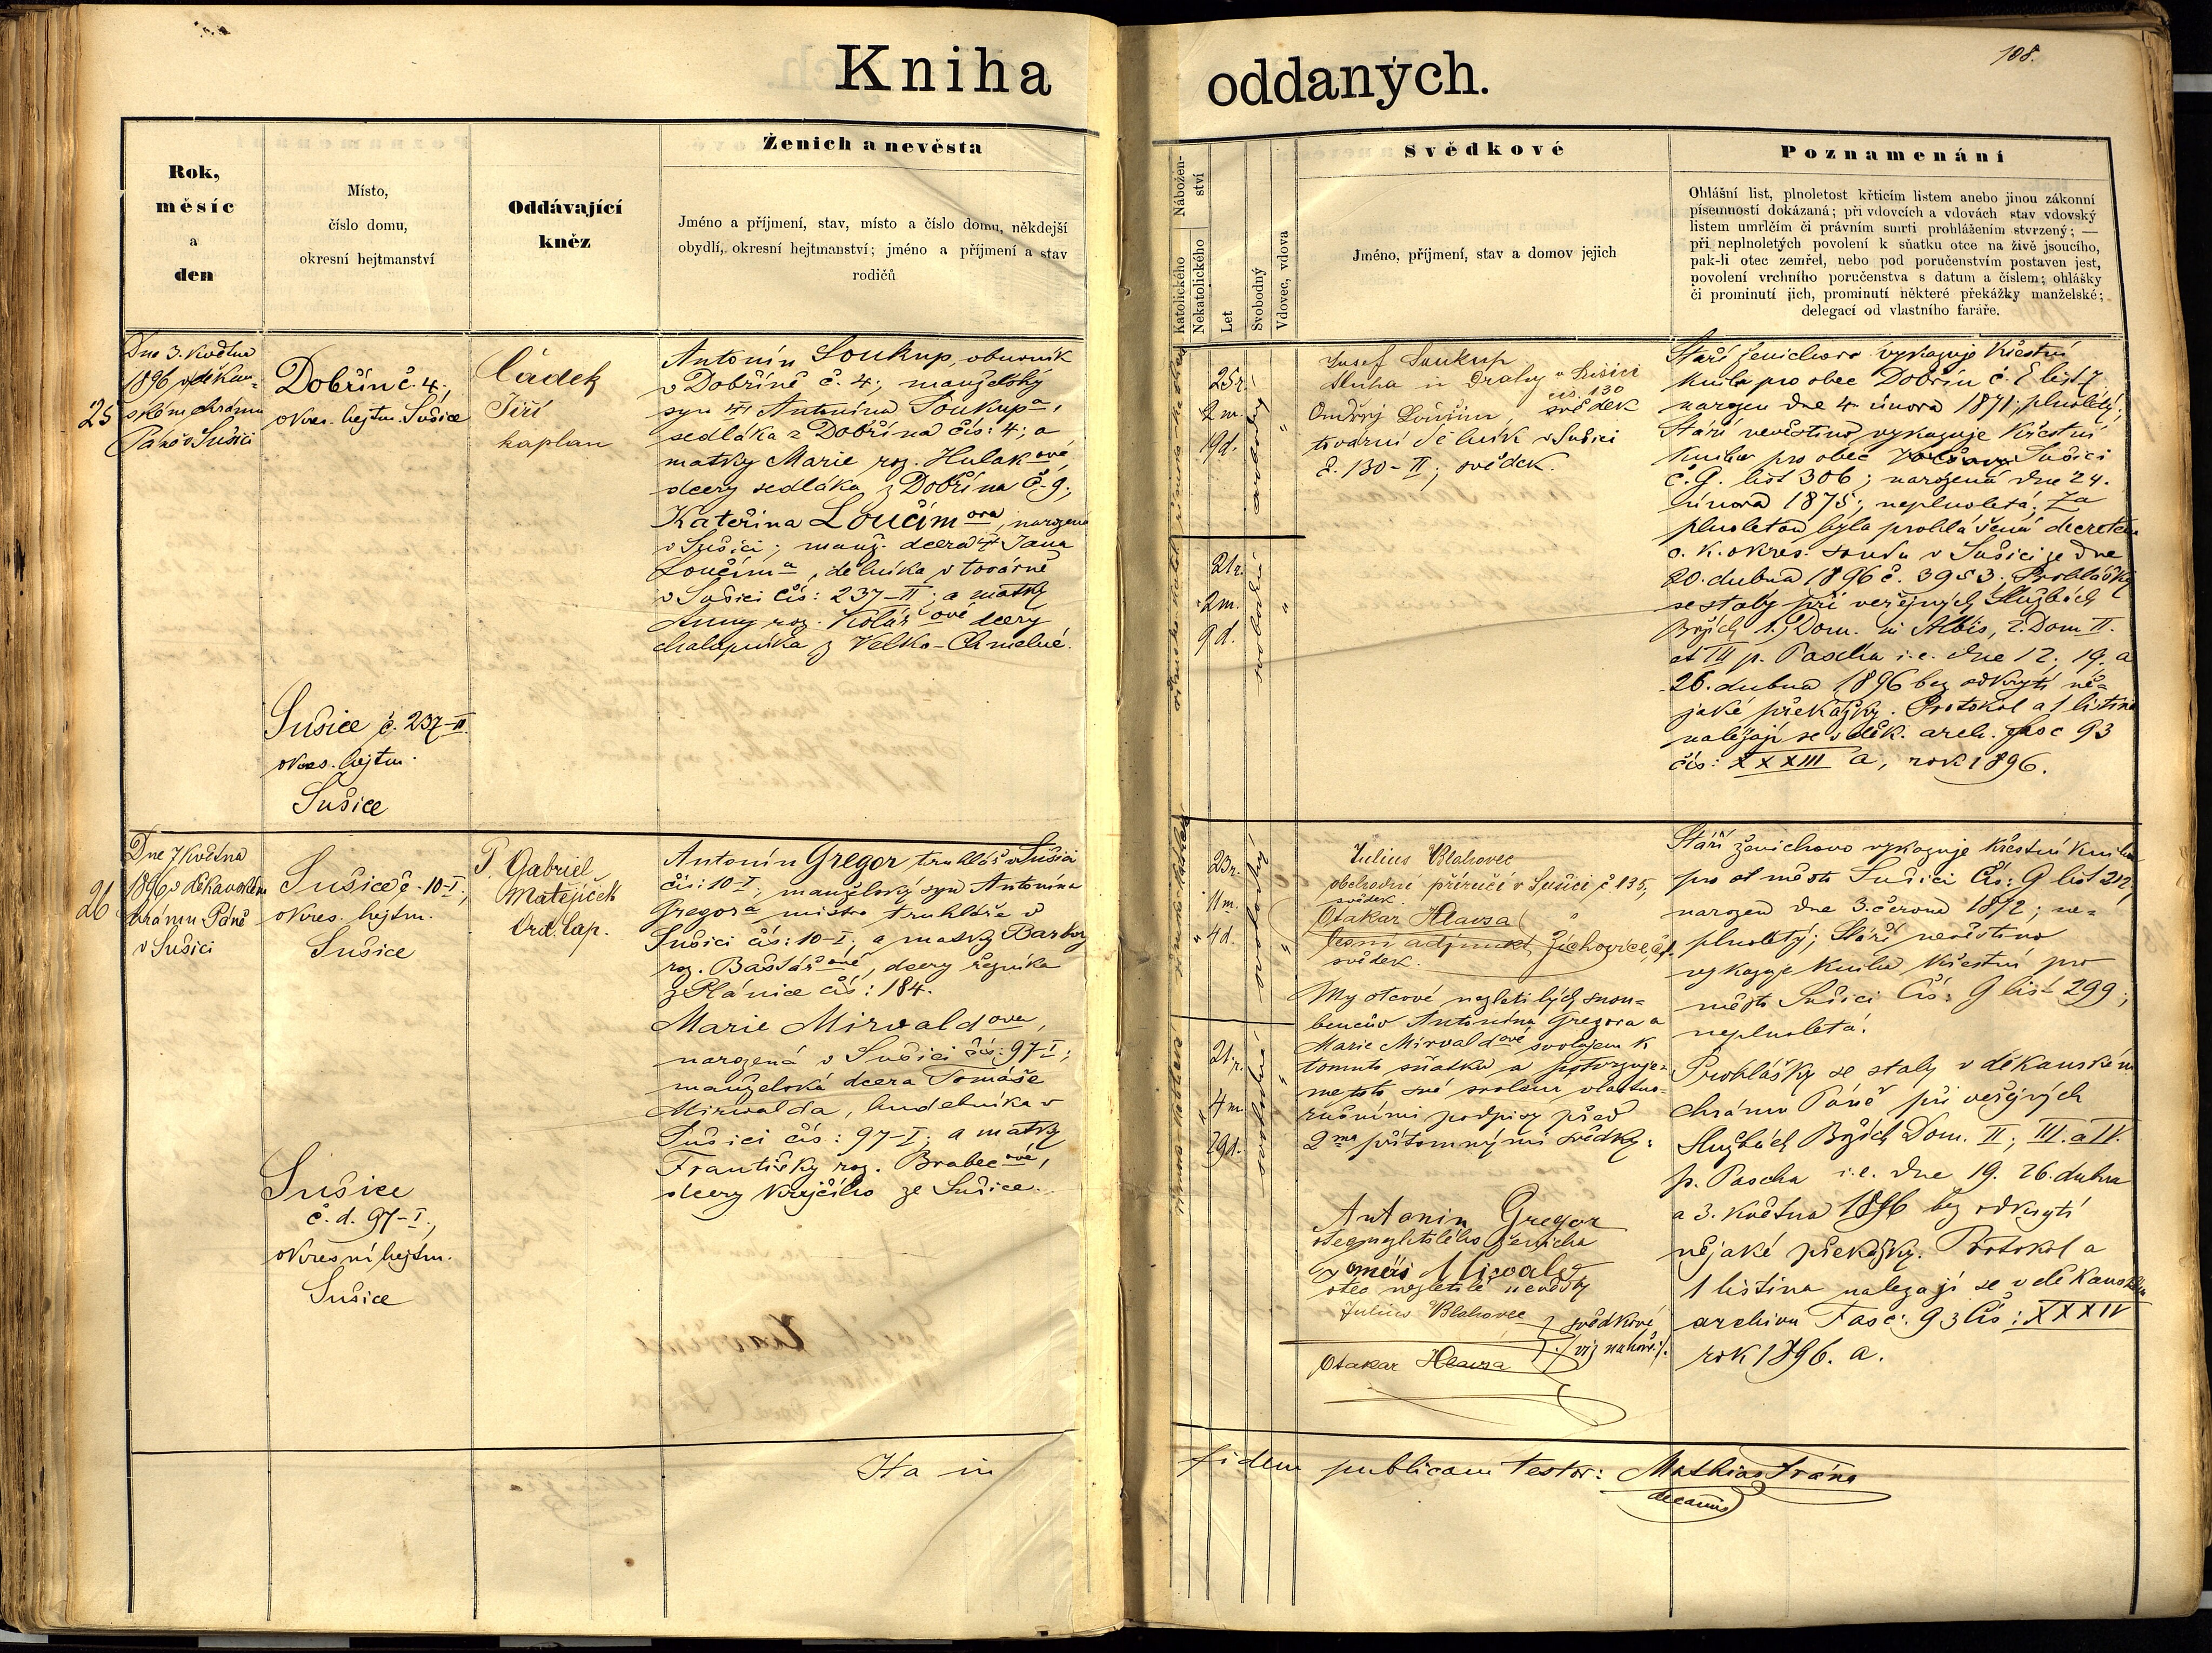 108.
Kniha oddaných.
Rok,
měsíc
a
den
Místo,
číslo domu,
okresní hejtmanství
Oddávající
kněz
Ženich a nevěsta
Jméno a příjmení, stav, místo a číslo domu, někdejší
obydlí, okresní hejtmanství; jméno a příjmení a stav
rodičů
Nábožen-
ství
Katolického
Nekatolického
Let
Svobodný
Vdovec, vdova
Svědkové
Jméno, příjmení, stav a domov jejich
Poznamenání
Ohlášní list, plnoletost křticím listem anebo jinou zákonní
písemností dokázaná; při vdovcích a vdovách stav vdovský
listem umrlčím či právním smrti prohlášením stvrzený; —
při neplnoletých povolení k sňatku otce na živě jsoucího,
pak-li otec zemřel, nebo pod poručenstvím postaven jest,
povolení vrchního poručenstva s datum a číslem; ohlášky
či prominutí jich, prominutí některé překážky manželské;
delegací od vlastního faráře.
25
Dne 3. Května
1896 v děkan-
ském chrámu
Páně v Sušici
Dobřín č. 4.,
okres. hejtm. Sušice
Čádek
Jiří
kaplan
Antonín Soukup, obuvník
v Dobříně č. 4; manželský
syn Antonína Soukupa,
sedláka z Dobřína čís: 4; a
matky Marie roz. Hulakové,
dcery sedláka z Dobřína č. 9;
Kateřina Loučímova, narozena
v Sušici; manž. dcera Jana
Loučíma, dělníka v továrně
v Sušici čís: 237-II; a matky
Anny roz. Kolářové dcery
chalupníka z Velko-Chmelné.
Sušice č. 237-II.
okres. hejtm.
Sušice
25 r.
2 m.
19 d.
svobodný
"
21 r.
2 m.
9 d.
svobodná
"
Josef Soukup
sluha u dráhy v Sušici
čís. 130
svědek
Ondřej
tovární dělník v Sušici
č. 130-II; svědek.
Stáří ženichovo vykazuje Křestní
kniha pro obec Dobřín č. E list 7
narozen dne 4. února 1871; plnoletý;
Stáří nevěstino vykazuje Křestní
kniha pro obec Sušici
č. G. list 306; narozená dne 24.
února 1875; neplnoletá; Za
plnoletou byla prohlášená decretem
c. k. okres. soudu v Sušici ze dne
20. dubna 1896 č. 3953. Prohlášky
se staly při veřejných Službách
Božích 1. Dom. in Albis, 2. Dom II.
et III p. Pascha i. e. dne 12; 19. a
26. dubna 1896 bez odkrytí ně-
jaké překážky. Protokol a 1 listina
nalézají se v děk. arch. Fasc 93
čís: XXXIII a, rok 1896.
26
Dne 7 Května
1896 v děkanském
chrámu Páně
v Sušici
Sušice č. 10-I;
okres. hejtm.
Sušice
P. Gabriel
Matějíček
Ord. Cap.
Antonín Gregor, truhlář v Sušici
čís: 10-I; manželský syn Antonína
Gregora mistra truhláře v
Sušici čís: 10-I; a matky Barbory
roz. Baštářové, dcery řezníka
z Plánice čís: 184.
Marie Mirvaldova,
narozená v Sušici čís: 97-I;
manželská dcera Tomáše
Mirvalda, hudebníka v
Sušici čís: 97-I; a matky
Františky roz. Brabcové,
dcery krejčího ze Sušice.
Sušice
č. d. 97-I.,
okresní hejtm.
Sušice
23 r.
11 m.
4 d.
svobodný
"
21 r.
4 m.
29 d.
svobodná
"
Julius Blahovec
obchodní příručí v Sušici č 135,
svědek.
Otakar Hlavsa
lesní adjunkt, Žichovice,
svědek.
My otcové nezletilých snou-
benců Antonína Gregora a
Marie Mirvaldové svolujem k
tomuto sňatku a potvrzuje-
me toto své svolení vlastno-
ručními podpisy před
2ma přítomnými svědky:
Antonín Gregor
otec nezletilého ženicha
Tomáš Mirvald
otec nezletilé nevěsty
Julius Blahovec
Otakar Hlavsa
svědkové
/: viz nahoře :/.
Stáří ženichovo vykazuje Křestní Kniha
pro město Sušici Čís: G list 212
narozen dne 3. června 1872; ne-
plnoletý; Stáří nevěstino
vykazuje Kniha Křestní pro
město Sušici Čís: G list 299;
neplnoletá.
Prohlášky se staly v děkanském
chrámu Páně při veřejných
Službách Božích Dom. II; III. a IV.
p. Pascha i. e. dne 19. 26. dubna
a 3. Května 1896 bez odkrytí
nějaké překážky. Protokol a
1 listina nalezají se v děkanském
archivu Fasc: 93 Čís: XXXIV
rok 1896. a.
Ita in fidem publicam testor: Mathias Frána
decanus